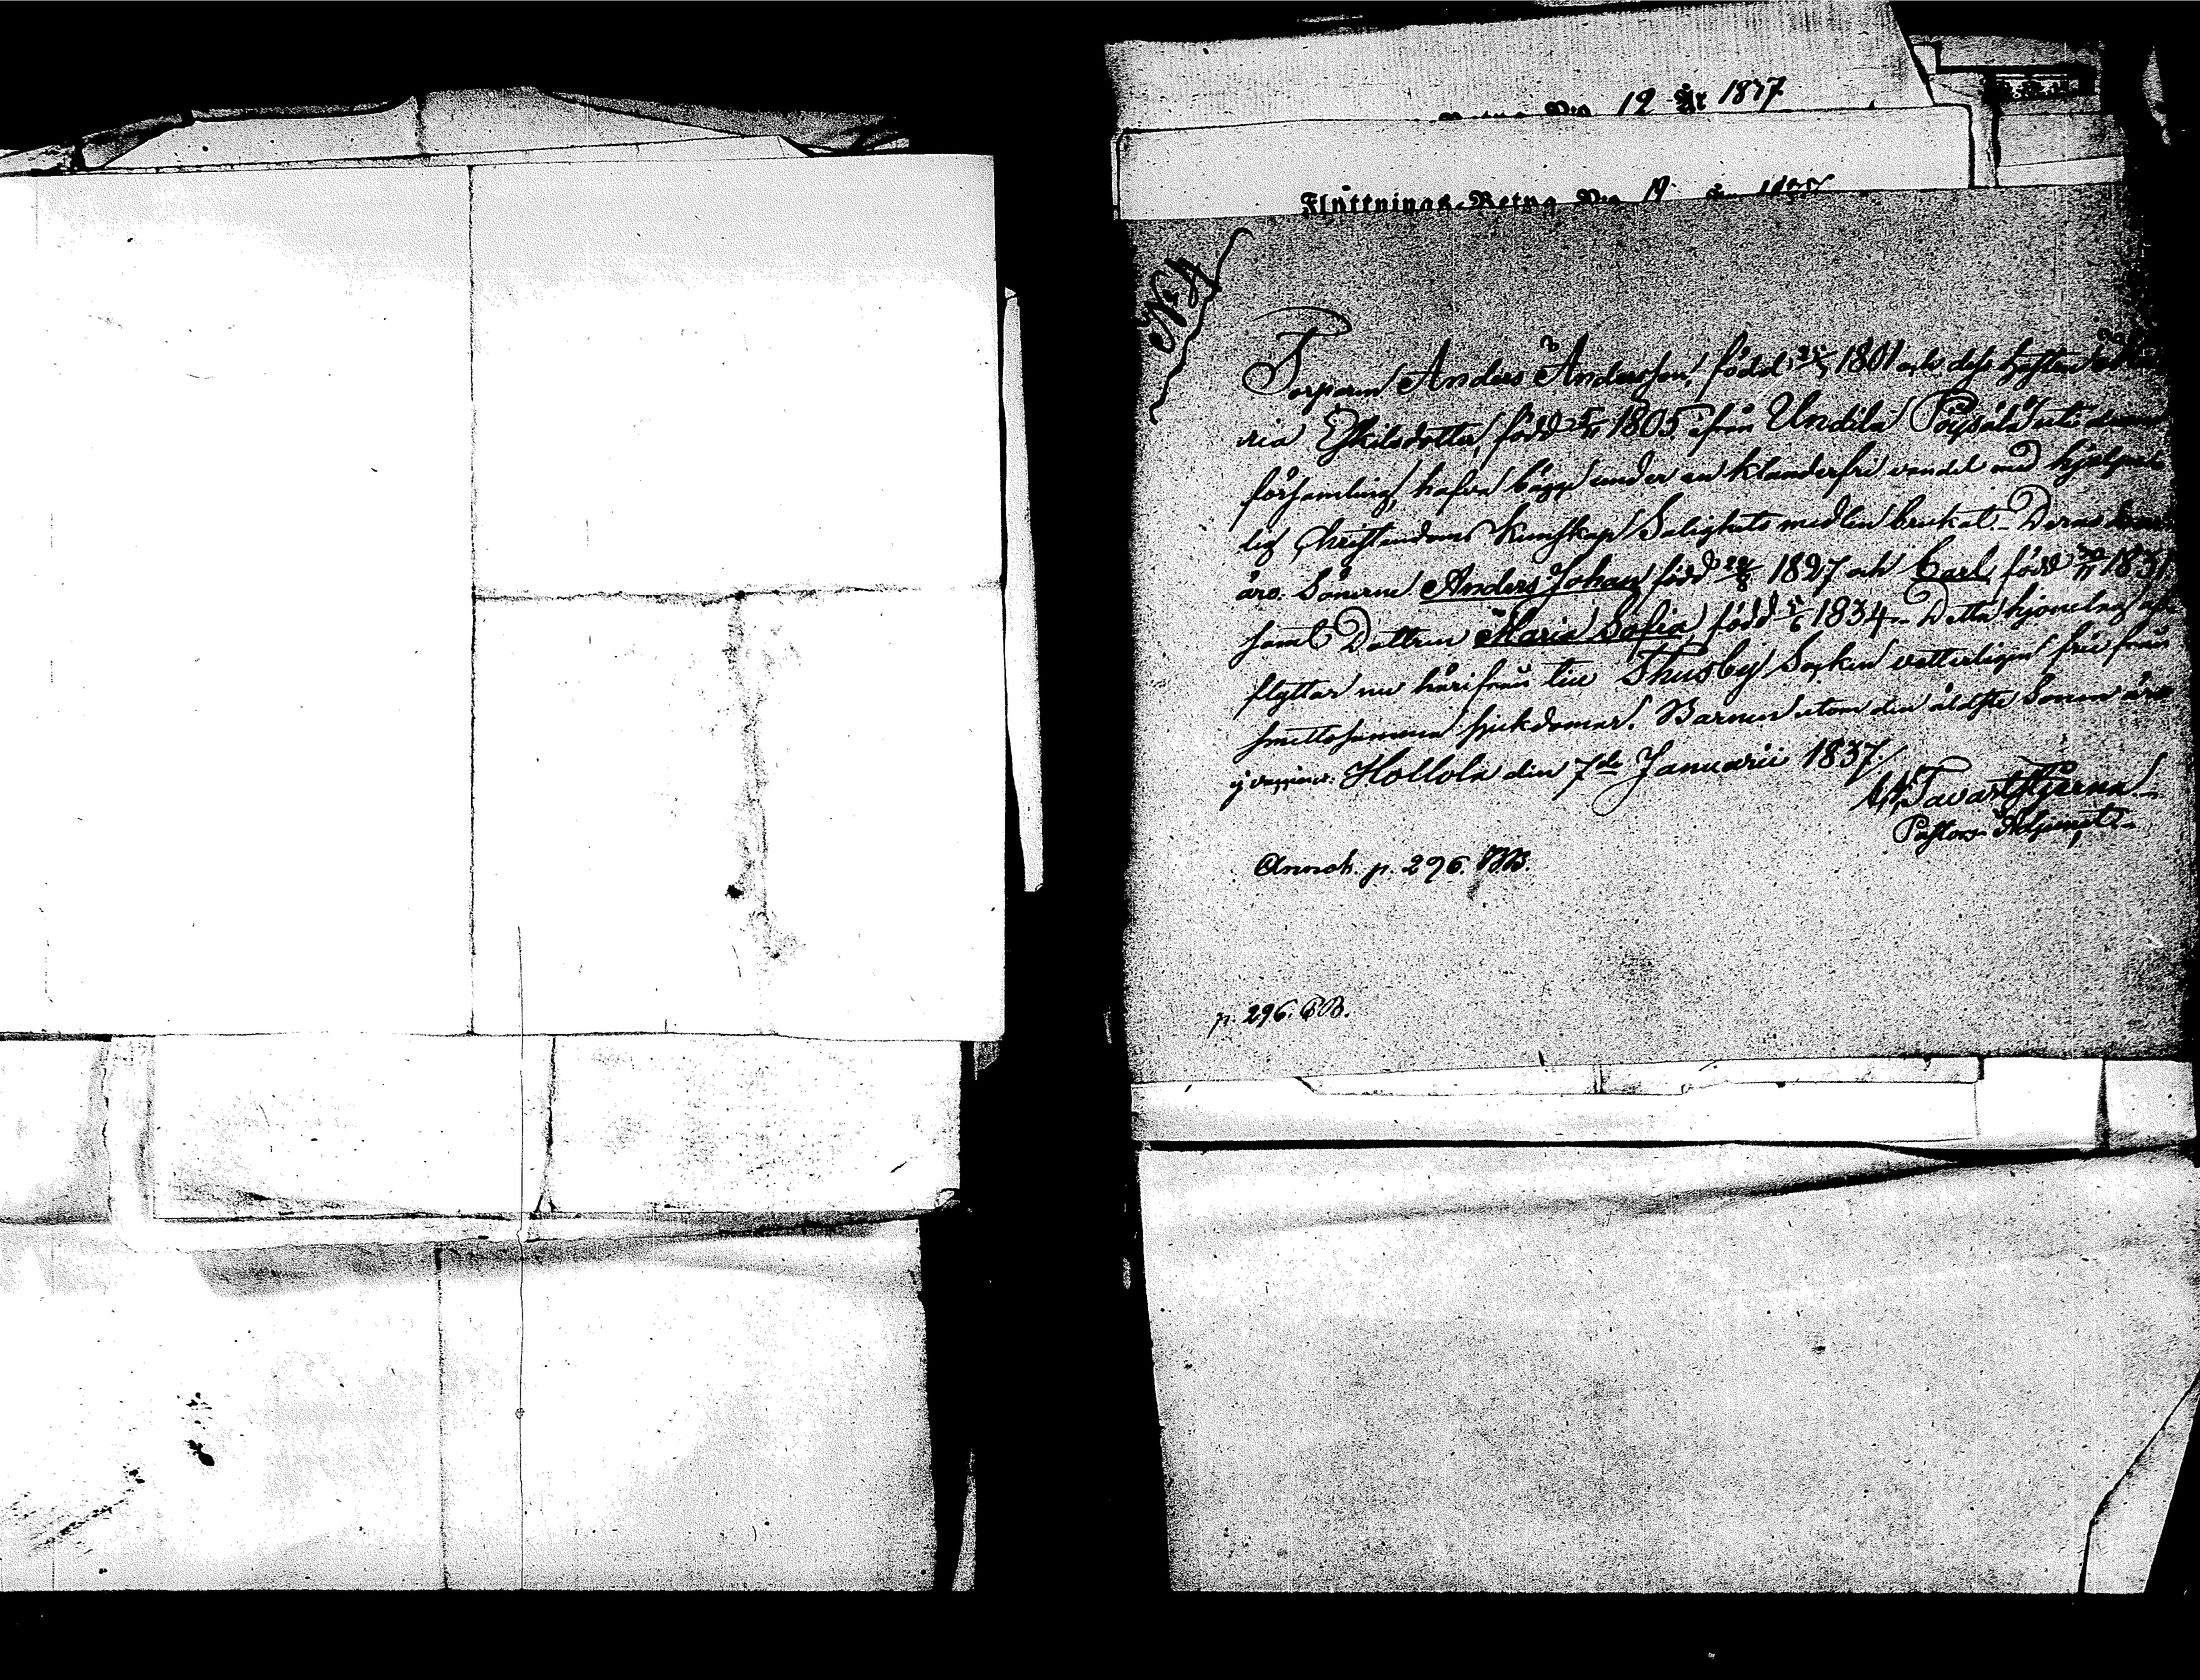 12 År 1837
Flyttnings-Betyg No 19 År 1837
N 4
Torparen Anders Andersson, född 1801 och dess hustru
ria Eskilsdotter, född 1805 ifrån Undila Pöysälä uti denna
församling, hafva bägge under en klanderfri vandel med hjelpe-
lig Christendoms kunskap Salighets medlen brukat. Deras barn
äro Sönerne Anders Johan född 1827 och Carl född 30/11 1831
samt Dottren Maria Sofia, född 1834. Detta hjonelag
flyttar nu härifrån till Thusby Socken vetterligen frie från
smittosamma sjukdomar. Barnen utom den äldste Sonen äro
vaccinerade. Hollola den 7de Januarii 1837.
Tavaststjerna
Pastors Adjunct
Annot. p. 296.
p. 296.